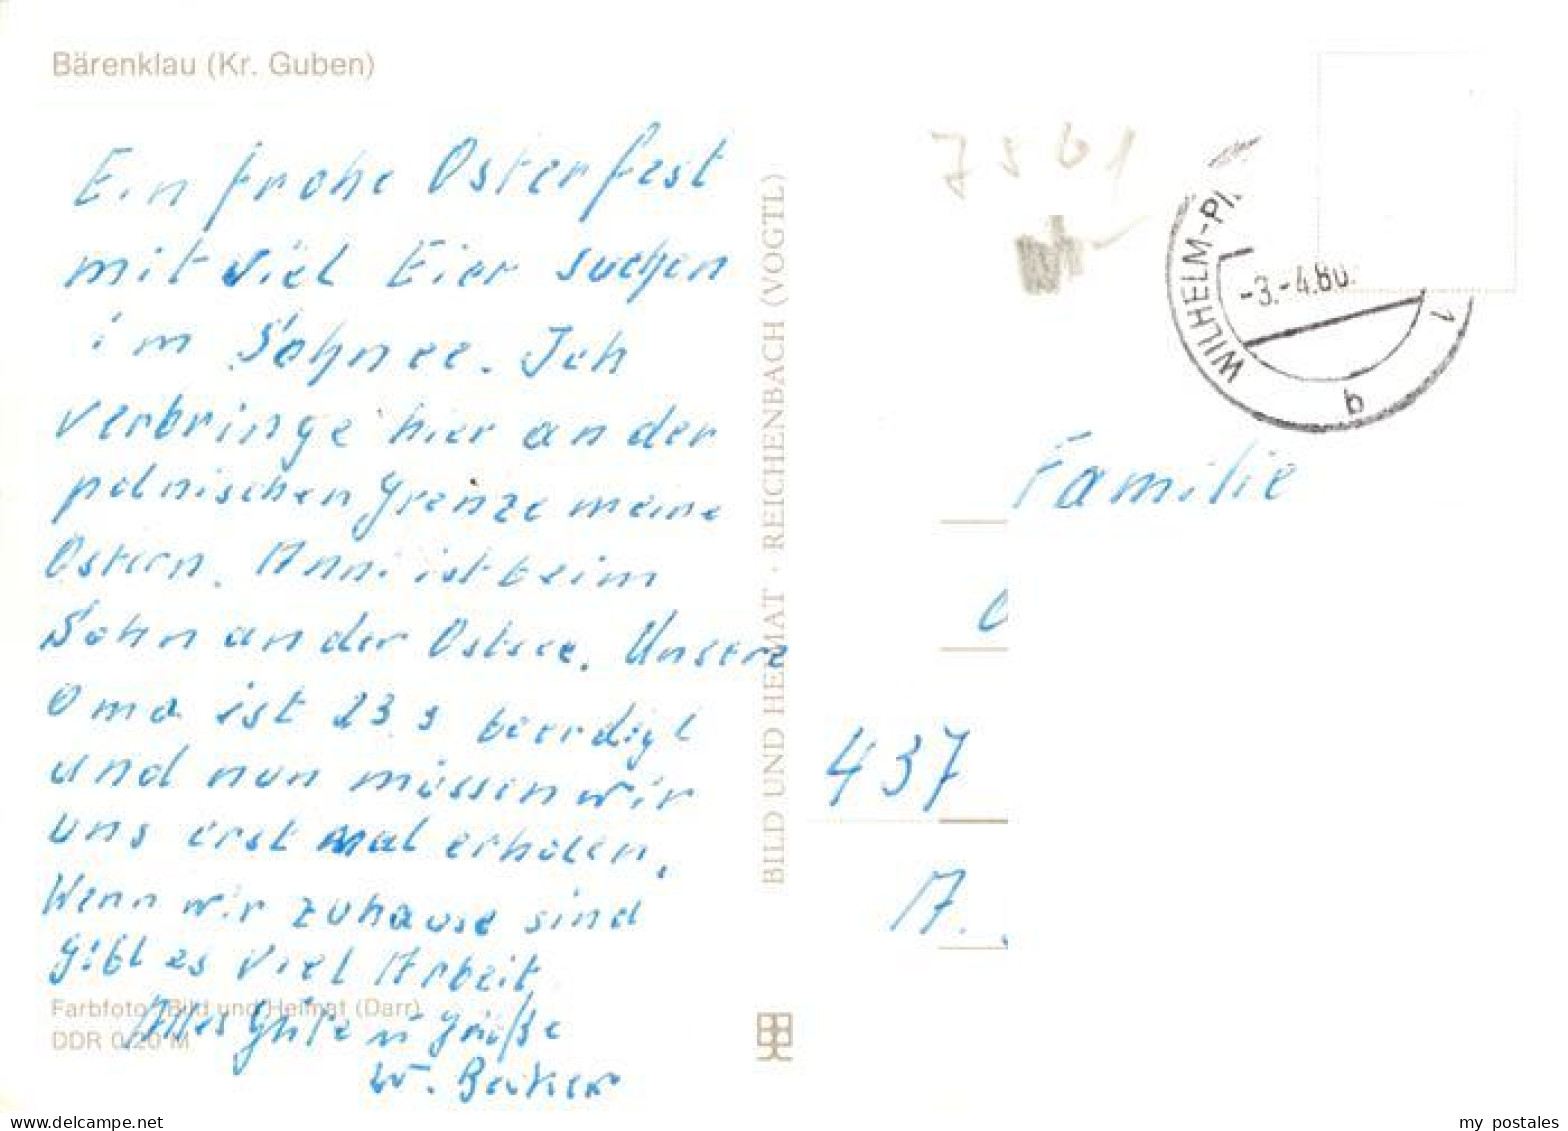 Bärenklau (Kr. Guben)
Ein frohe Osterfest
mit viel Eier suchen
im Schnee. Ich
verbringe hier an der
polnischen Grenze meine
Ostern. Anni ist beim
Sohn an der Ostsee. Unsere
Oma ist 23. 3 beerdigt
und nun müssen wir
uns erst mal erholen.
Wenn wir zuhause sind
gibt es viel Arbeit
Farbfoto: Bild und Heimat (Darr)
Alles Gute u Grüße
DDR 0,20 M
W. Becker
BILD UND HEIMAT · REICHENBACH (VOGTL)
7561
WILHELM-PI
-3.-4.80.
1
b
Familie
437
my postales